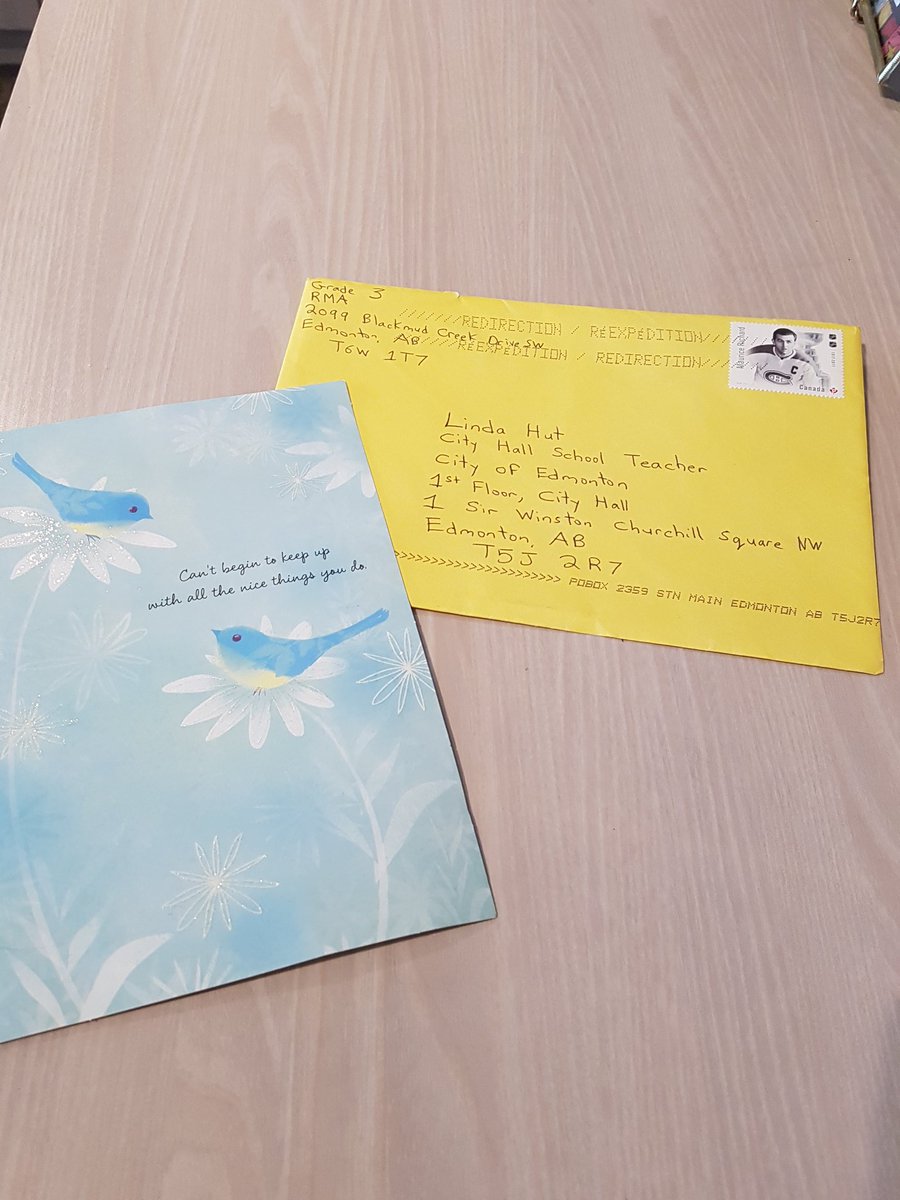 Grade 3
RMA
2099 Blackmud Creek Drive SW
Edmonton, AB
T6W 1T7
///////REDIRECTION / RéEXPéDITION///////
//////RéEXPéDITION / REDIRECTION///////
Maurice Richard
Canada
C
Linda Hut
City Hall School Teacher
City of Edmonton
1st Floor, City Hall
1 Sir Winston Churchill Square NW
Edmonton, AB
T5J 2R7
>>>>>>>>>>>>>>>>>>>>>>>> POBOX 2359 STN MAIN EDMONTON AB T5J2R7
Can't begin to keep up
with all the nice things you do.